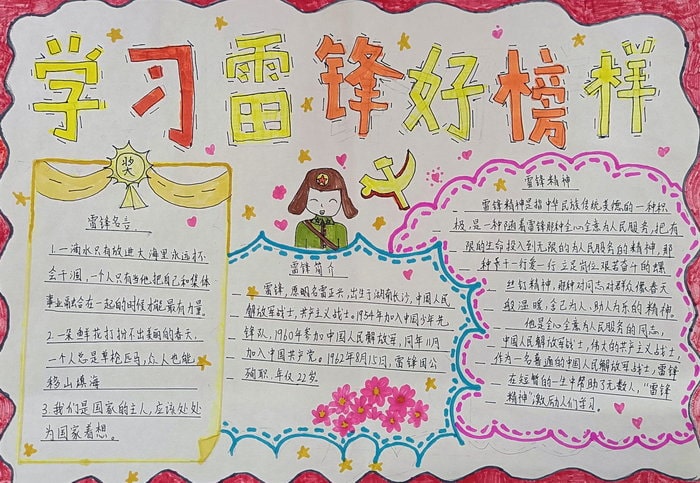 学习雷锋好榜样
奖
雷锋名言
1.一滴水只有放进大海里永远不
会干涸,一个人只有当他把自己和集体
事业融合在一起的时候才能最有力量
2.一朵鲜花打扮不出美丽的春天,
一个人总是单枪匹马,众人也能
移山填海
3.我们是国家的主人,应该处处
为国家着想。
雷锋简介
雷锋,原明名雷正兴,出生于湖南长沙,中国人民
解放军战士,共产主义战士。1954年加入中国少年先
锋队,1960年参加中国人民解放军,同年11月
加入中国共产党。1962年8月15日,雷锋因公
殉职,年仅22岁
雷锋精神
雷锋精神是指中华民族传统美德的一种积
极,是一种随着雷锋那种全心全意为人民服务,把有
限的生命投入到无限的为人民服务的精神,那
种干一行爱一行立足岗位,艰苦奋斗的螺
丝钉精神,那种对同志对群众像春天
般温暖,舍己为人、助人为乐的精神。
他是全心全意为人民服务的同志,
中国人民解放军战士,伟大的共产主义战士,
作为一名普通的中国人民解放军战士,雷锋
在短暂的一生中帮助了无数人,“雷锋
精神”激励人们学习。